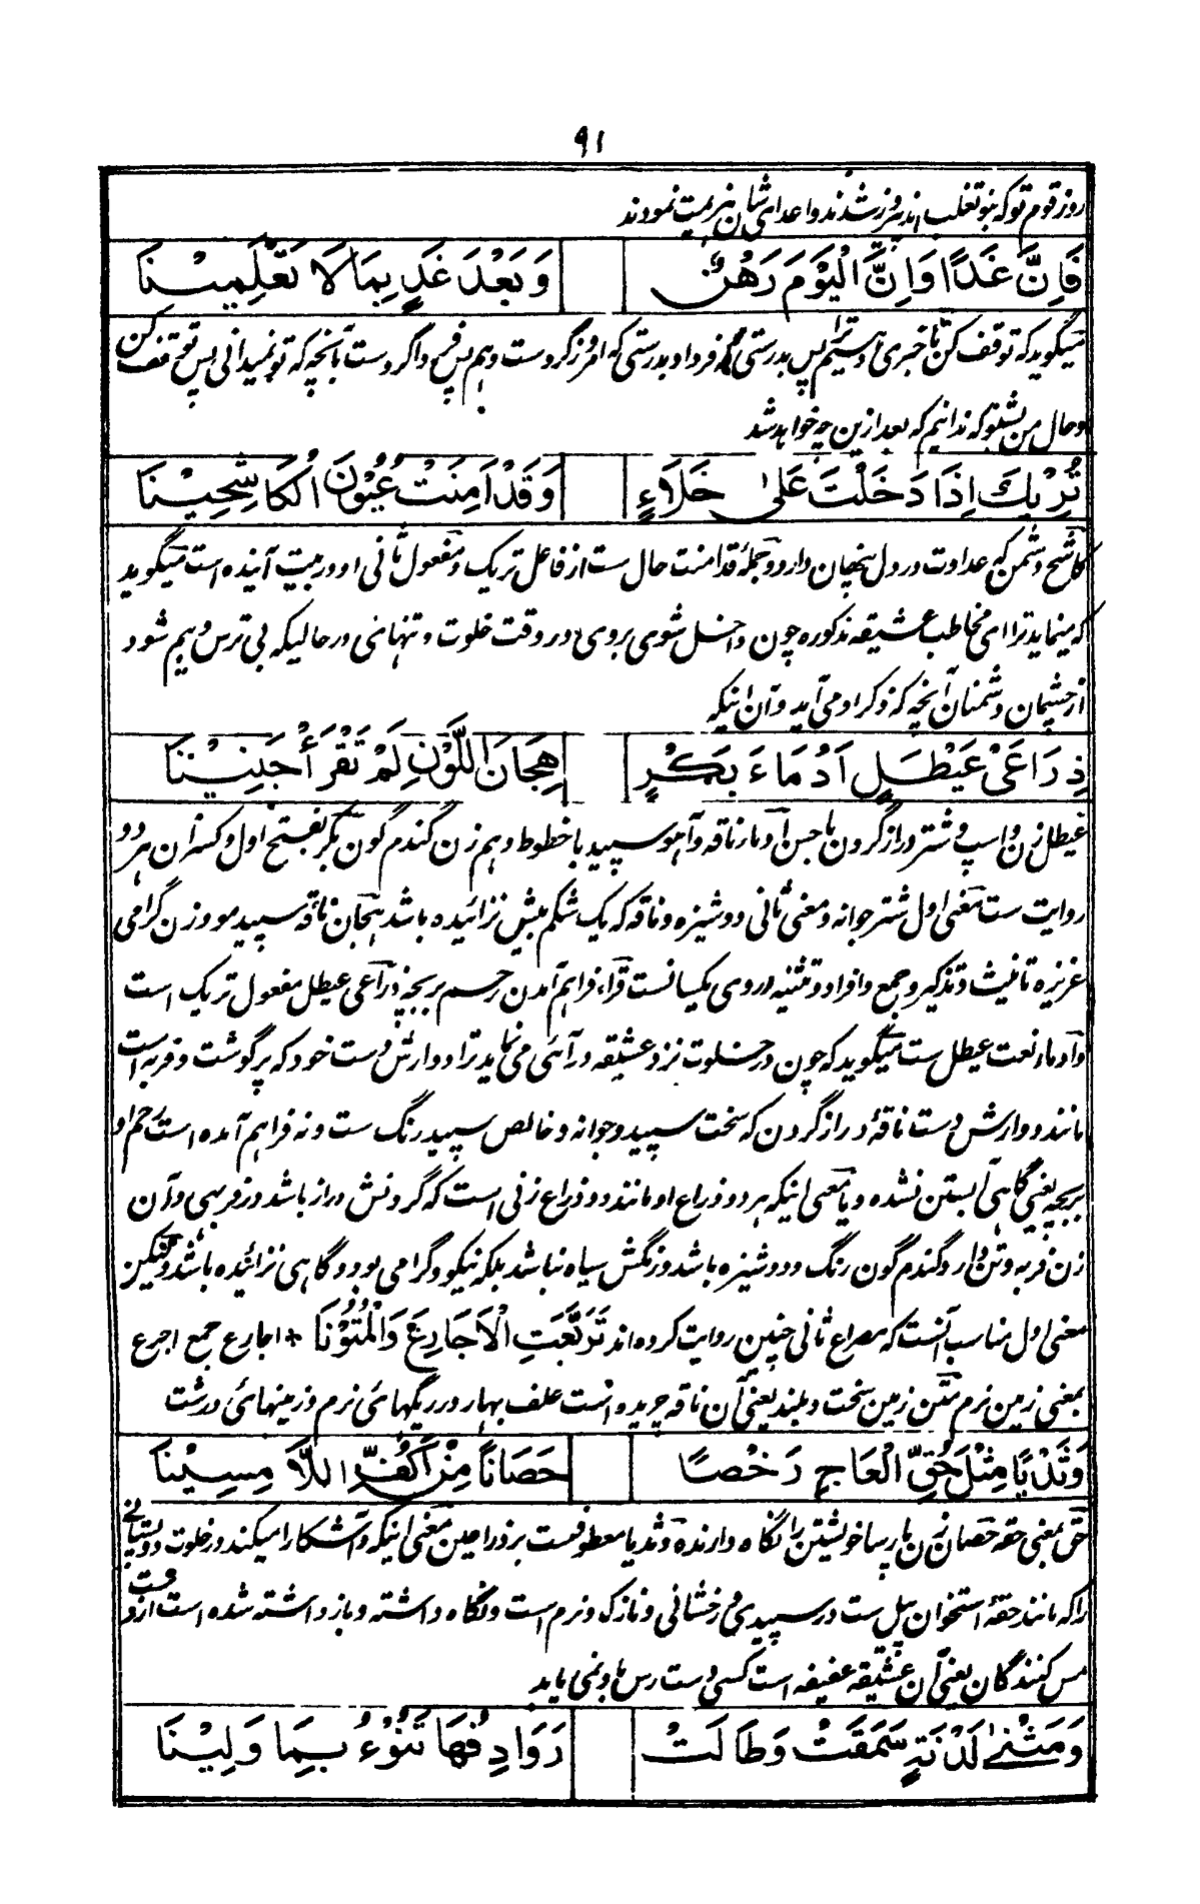 ۹۱
روز قوم تو که بنو تغلب اند پیروز شدند و اعدای شان هزیمت نمودند
فَاِنَّ غَدًا وَاِنَّ الْيَوْمَ رَهْنٌ وَبَعْدَ غَدٍ بِمَا لَا تَعْلَمِيْنَا
میگوید که توقف کن تا خبری دهیم ترا پس بدرستی که فردا و بدرستی که امروز گروست و هم پس فردا گروست بآنچه که تو نمیدانی پس توقف کن
و حال من بشنو که ندانیم که بعد ازین چه خواهد شد
تُرِيْكَ اِذَا دَخَلْتَ عَلٰى خَلَاءٍ وَقَدْ اَمِنَتْ عُيُوْنَ الْكَاشِحِيْنَا
کاشح دشمن که عداوت در دل پنهان دارد و جملهٔ قد امنت حال ست از فاعل تریک و مفعول ثانی او در بیت آینده است میگوید
که مینماید ترا ای مخاطب عشیقه مذکوره چون داخل شوی بروی در وقت خلوت و تنهائی در حالیکه بی ترس و بیم شود
از چشمان دشمنان آنچه که ذکر او می آید و آن اینکه
ذِرَاعَىْ عَيْطَلٍ اَدْمَاءَ بَكْرٍ هِجَانَ اللَّوْنِ لَمْ تَقْرَأْ جَنِيْنَا
عیطل زن و اسپ و شتر دراز گردن با حسن آدماء ناقه و آهو سپید با خطوط و هم زن گندم گون بکر بفتح اول و کسر آن هر دو
روایت ست بمعنی اول شتر جوانه و معنی ثانی دوشیزه و ناقه که یک شکم بیش نزائیده باشد هجان ناقه سپید مو و زن گرامی
عزیزه تانیث و تذکیر و جمع و افراد و تثنیه در وی یکسانست قرأ فراهم آمدن رحم بر بچه ذراعی عیطل مفعول تریک است
و آدماء نعت عیطل ست میگوید که چون در خلوت نزد عشیقه در آئی می نماید ترا دو ارش دست خود که پر گوشت و فربه است
مانند دو ارش دست ناقهٔ دراز گردن که سخت سپید و جوانه و خالص سپید رنگ ست و نه فراهم آمده است رحم او
بر بچه یعنی گاهی آبستن نشده و یا بمعنی اینکه هر دو ذراع او مانند دو ذراع زنی است که گردنش دراز باشد و ز فربهی و آن
زن فربه و تن دار و گندم گون رنگ و دوشیزه باشد و رنگش سیاه نباشد بلکه نیکو و گرامی بود و گاهی نزائیده باشد و لیکن
معنی اول مناسب آنست که مصراع ثانی چنین روایت کرده اند تَرَبَّعَتِ الْاَجَارِعَ وَالْمُتُوْنَا + اجارع جمع اجرع
بمعنی زمین نرم متن زمین سخت و بلند یعنی آن ناقه چریده است علف بهار در ریگهائ نرم و زمینهائ درشت
وَثَدْيًا مِثْلَ حُقِّ الْعَاجِ رَخْصًا حَصَانًا مِنْ اَكُفِّ اللَّامِسِيْنَا
حق بمعنی حقه حصان زن پارسا خویشتن را نگاه دارنده و ثدیا معطوفست بر ذراعین بمعنی اینکه و آشکارا میکند در خلوت دو پستانی
را که مانند حقهٔ استخوان پیل ست در سپیدی و درخشانی و نازک و نرم است و نگاه داشته و باز داشته شده است از دست
مس کنندگان یعنی آن عشیقه عفیفه است کسی دست رس باو نمی یابد
وَمَتْنَىْ لَدْنَةٍ سَمَقَتْ وَطَالَتْ رَوَادِفُهَا تَنُوْءُ بِمَا وَلِيْنَا